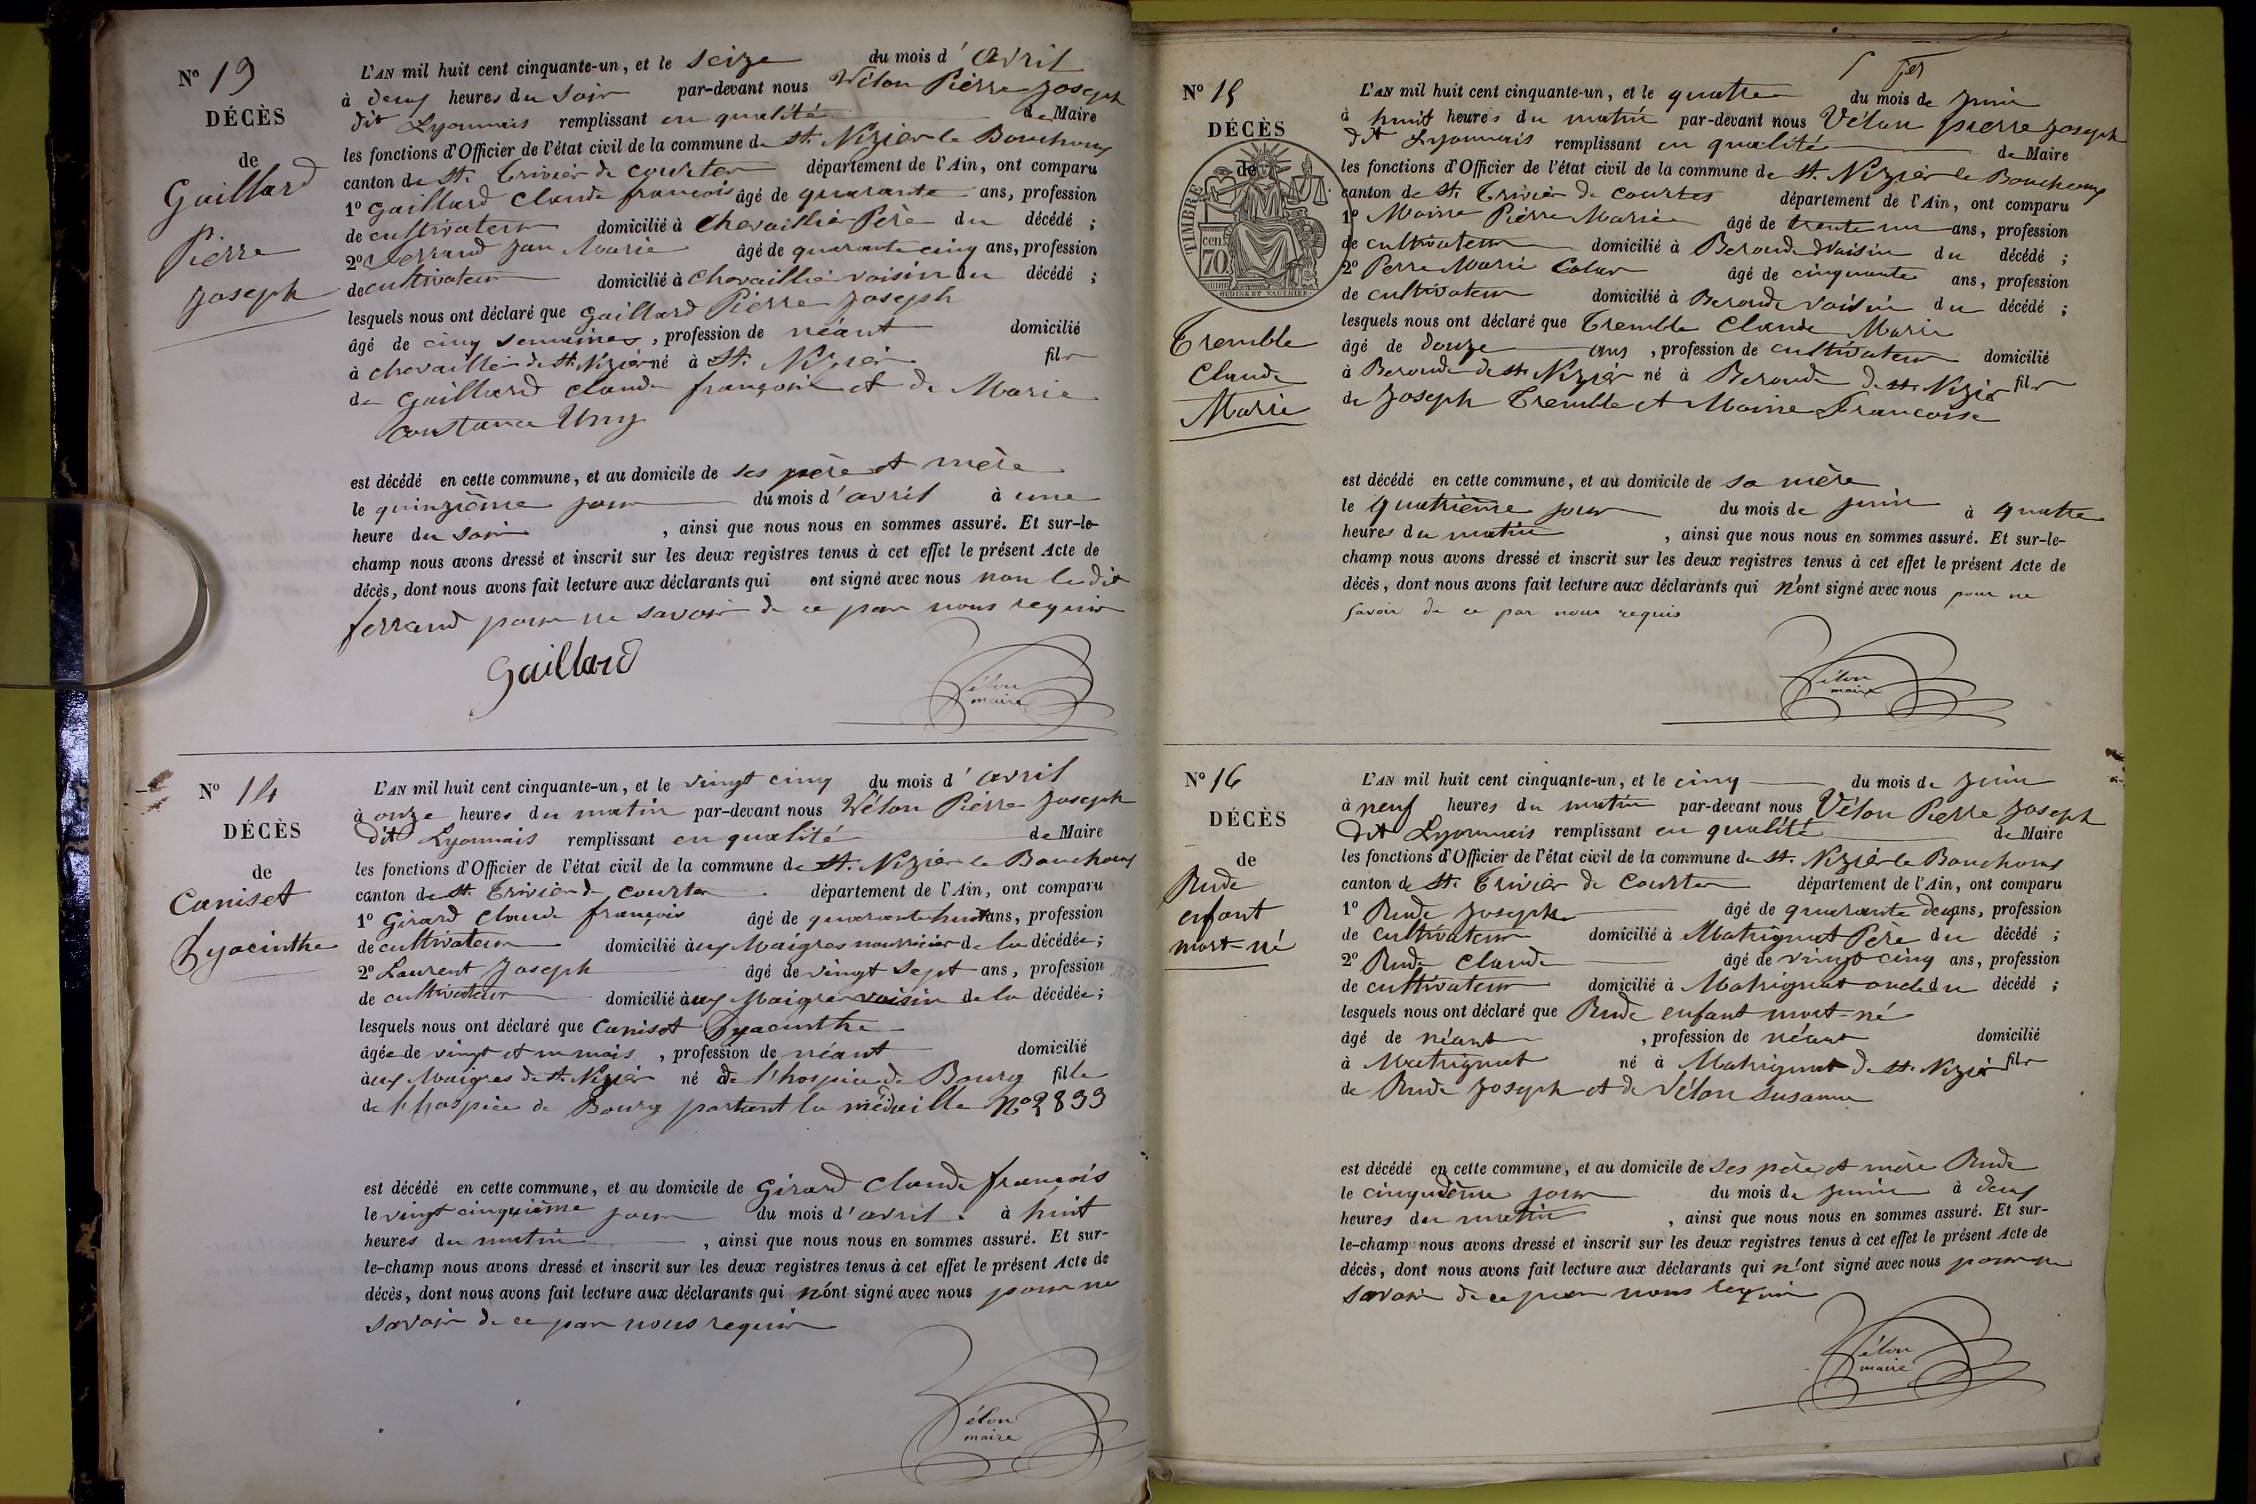 N° 13
DÉCÈS
de
Gaillard
Pierre
Joseph
L'AN mil huit cent cinquante-un, et le seize du mois d'avril
à deux heures du soir par-devant nous Vélon Pierre Joseph
dit Lyonnais remplissant en qualité de Maire
les fonctions d'Officier de l'état civil de la commune de St. Nizier le Bouchoux
canton de St. Trivier de Courtes département de l'Ain, ont comparu
1° Gaillard Claude françois âgé de quarante ans, profession
de cultivateur domicilié à Chevaillier Père du décédé ;
2° ferrand Jan Marie âgé de quarante cinq ans, profession
de cultivateur domicilié à Chevaillier voisin du décédé ;
lesquels nous ont déclaré que Gaillard Pierre Joseph
âgé de cinq semaines, profession de néant domicilié
à chevaillier de St. Nizier né à St. Nizier fils
de Gaillard Claude françois et de Marie
Constance Uny
est décédé en cette commune, et au domicile de ses père et mère
le quinzième jour du mois d'avril à une
heure du soir, ainsi que nous nous en sommes assuré. Et sur-le-
champ nous avons dressé et inscrit sur les deux registres tenus à cet effet le présent Acte de
décès, dont nous avons fait lecture aux déclarants qui ont signé avec nous non le dit
ferrand pour ne savoir de ce par nous requis
Gaillard
Vélon
maire
N° 14
DÉCÈS
de
Caniset
hyacinthe
L'AN mil huit cent cinquante-un, et le vingt cinq du mois d'avril
à onze heures du matin par-devant nous Vélon Pierre Joseph
dit Lyonnais remplissant en qualité de Maire
les fonctions d'Officier de l'état civil de la commune de St. Nizier le Bouchoux
canton de St. Trivier de Courtes département de l'Ain, ont comparu
1° Girard Claude françois âgé de quarante huit ans, profession
de cultivateur domicilié aux Maigres nourricier de la décédée ;
2° Laurent Joseph âgé de vingt sept ans, profession
de cultivateur domicilié aux Maigres voisin de la décédée ;
lesquels nous ont déclaré que Caniset hyacinthe
âgée de vingt et un mois, profession de néant domicilié
aux Maigres de St. Nizier né de l'hospice de Bourg fille
de l'hospice de Bourg portant la médaille N° 2833
est décédé en cette commune, et au domicile de Girard Claude françois
le vingt cinquième jour du mois d'avril à huit
heures du matin, ainsi que nous nous en sommes assuré. Et sur-
le-champ nous avons dressé et inscrit sur les deux registres tenus à cet effet le présent Acte de
décès, dont nous avons fait lecture aux déclarants qui n'ont signé avec nous pour ne
savoir de ce par nous requis
Vélon
maire
N° 15
DÉCÈS
de
TIMBRE
cen
70
Tremble
Claude
Marie
L'AN mil huit cent cinquante-un, et le quatre du mois de Juin
à huit heures du matin par-devant nous Vélon pierre Joseph
dit Lyonnais remplissant en qualité de Maire
les fonctions d'Officier de l'état civil de la commune de St. Nizier le Bouchoux
canton de St. Trivier de Courtes département de l'Ain, ont comparu
1° Moine Pierre Marie âgé de trente un ans, profession
de cultivateur domicilié à Beroude voisin du décédé ;
2° Perre Marie Colas âgé de cinquante ans, profession
de cultivateur domicilié à Beroude voisin du décédé ;
lesquels nous ont déclaré que Tremble Claude Marie
âgé de douze ans, profession de cultivateur domicilié
à Beroude de St. Nizier né à Beroude de St. Nizier fils
de Joseph Tremble et Moine Francoise
est décédé en cette commune, et au domicile de sa mère
le quatrième jour du mois de juin à quatre
heures du matin, ainsi que nous nous en sommes assuré. Et sur-le-
champ nous avons dressé et inscrit sur les deux registres tenus à cet effet le présent Acte de
décès, dont nous avons fait lecture aux déclarants qui n'ont signé avec nous pour ne
savoir de ce par nous requis
Vélon
maire
N° 16
DÉCÈS
de
Rude
enfant
mort-né
L'AN mil huit cent cinquante-un, et le cinq du mois de Juin
à neuf heures du matin par-devant nous Vélon Pierre Joseph
dit Lyonnais remplissant en qualité de Maire
les fonctions d'Officier de l'état civil de la commune de St. Nizier le Bouchoux
canton de St. Trivier de Courtes département de l'Ain, ont comparu
1° Rude Joseph âgé de quarante deux ans, profession
de cultivateur domicilié à Matrignat Père du décédé ;
2° Rude Claude âgé de vingt cinq ans, profession
de cultivateur domicilié à Matrignat oncle du décédé ;
lesquels nous ont déclaré que Rude enfant mort-né
âgé de néant, profession de néant domicilié
à Matrignat né à Matrignat de St. Nizier fils
de Rude Joseph et de Vélon Susanne
est décédé en cette commune, et au domicile de ses père et mère Rude
le cinquième jour du mois de juin à deux
heures du matin, ainsi que nous nous en sommes assuré. Et sur-
le-champ nous avons dressé et inscrit sur les deux registres tenus à cet effet le présent Acte de
décès, dont nous avons fait lecture aux déclarants qui n'ont signé avec nous pour ne
savoir de ce par nous requis
Vélon
maire